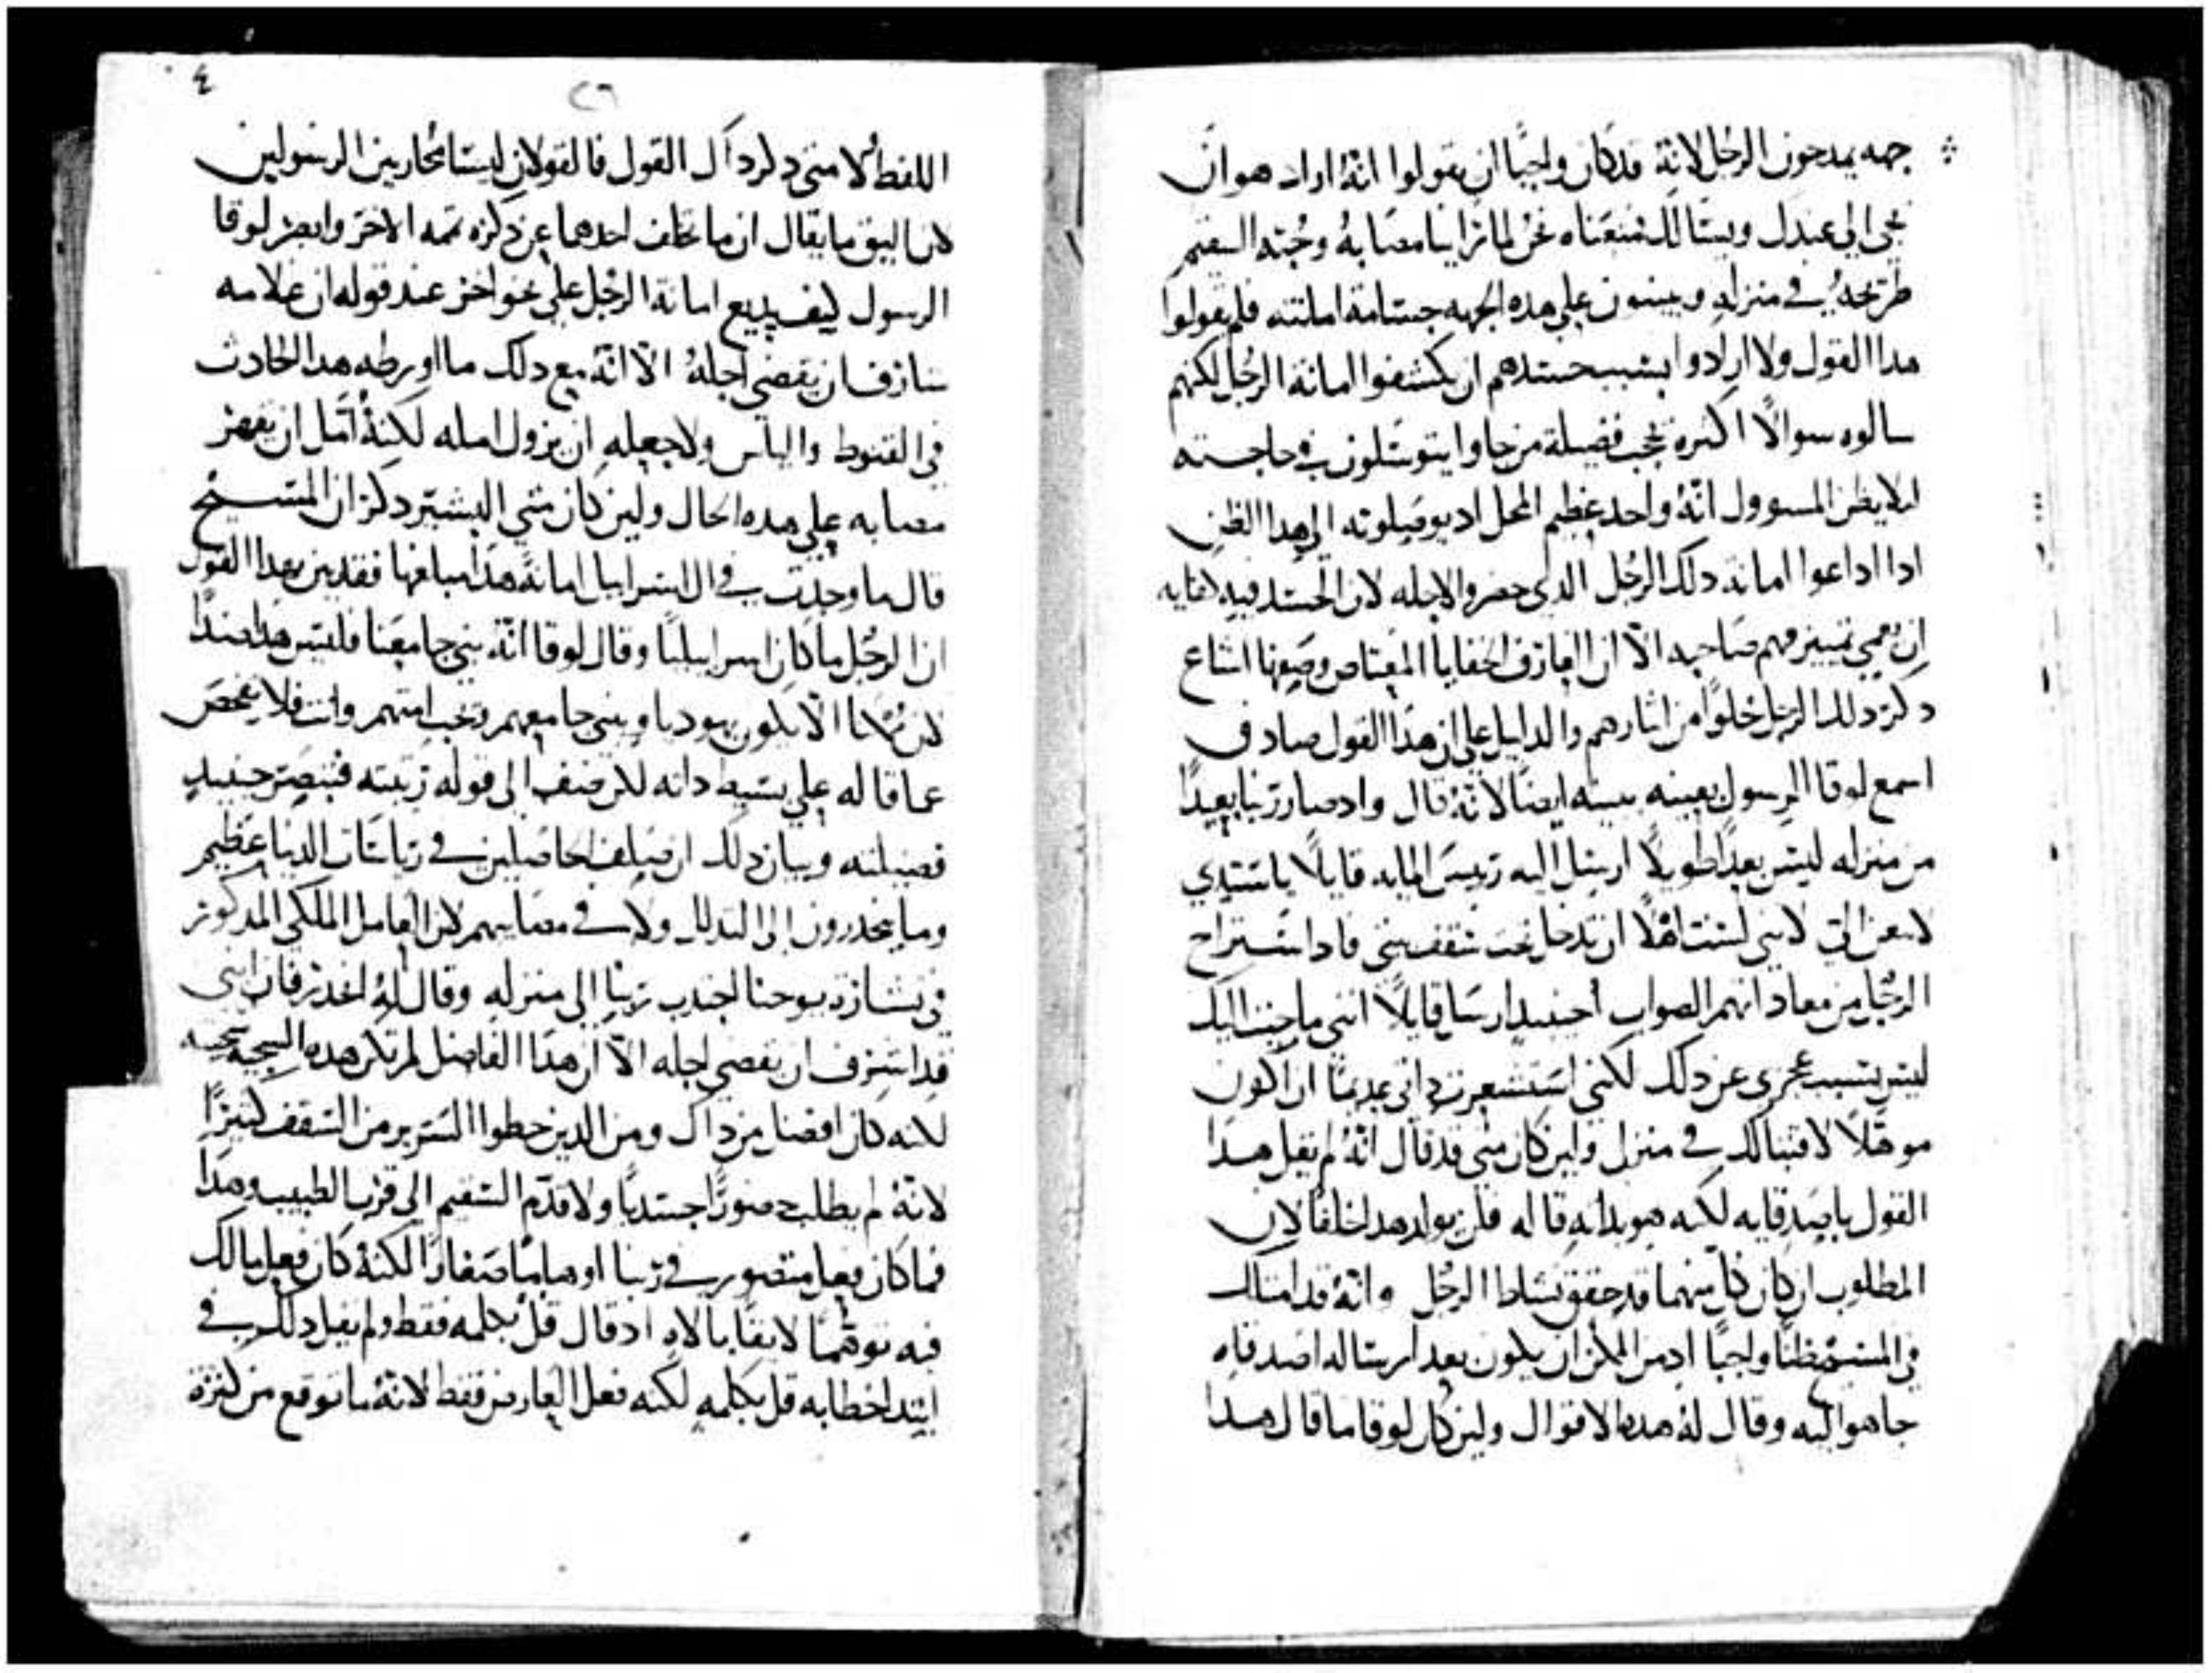 جهه يمدحون الرجل لانه قد كان واجبًا ان يقولوا انه اراد هو ان
يجي الي عندك ويسالك فمنعناه نحن لما راينا مصابه وجثته السقيم
طريحه في منزله ويبينون علي هده الجهه جسامة امانته فلم يقولوا
هدا القول ولا ارادوا بسبب حسدهم ان يكشفوا امانة الرجل لكنهم
سالوه سوالًا اكتره فضيلة من جاوا يتوسلون في حاجته
ليلا يظن المسوول انه واحد عظيم المحل اد يوصلوته الي هدا الظن
ادا اداعوا امانة دلك الرجل الدي حضروا لاجله لان الحسد فيه كفايه
ان يعمي تمييز فهم صاحبه الا ان العارف الخفايا المعتاص وصفها اشاع
دكر دلك الرجل خلوًا من ايثارهم والدليل علي ان هدا القول صادق
اسمع لوقا الرسول بعينه يبينه ايضًا لانه قال واد صار ربنا بعيدًا
من منزله ليس بعدًا طويلًا ارسل اليه رييس المايه قايلًا يا سيدي
لا تعن الي لانني لست اهلًا ان تدخل تحت سقف بيتي فادا استراح
الرجل من معاداتهم الصواب حينيد ارسا قايلًا انني ما جيت اليك
ليس بسبب عجزي عن دلك لكنني استشعرت داتي عديمًا ان اكون
موهلًا لاقتبالك في منزلي ولين كان متي قد قال انه لم يقل هدا
القول باصدقايه لكنه هو بداته قاله فلن يولد هدا خلفًا لان
المطلوب ان كان كل منهما قد حقق نشاط الرجل وانه قد امتلك
في المسيح ظنًا واجبًا اد من الممكن ان يكون بعد ارساله اصدقاه
جا هو اليه وقال له هده الاقوال ولين كان لوقا ما قال هدا
٤
٢٦
اللفظ ولا متي دكر داك القول فالقولان ليسا محاربين الرسولين
لان اليق ما يقال ان ما تخلف احدهما عن دكره تممه الاخر وابصر لوقا
الرسول كيف يديع امانة الرجل علي نحو اخر عند قوله ان غلامه
شارف ان يقضي اجله الا انه مع دلك ما اورطه هدا الحادث
في القنوط والياس ولا جعله ان يزول امله لكنه امل ان يقهر
مصابه علي هده الحال ولين كان متي البشير دكر ان المسيح
قال ما وجدت في ال اسراييل امانة هدا مبلغها فقد بين بهدا القول
ان الرجل ما كان اسراييليًا وقال لوقا انه بني جامعنا فليس هدا ضدًا
لان ممكنا الا يكون يهوديا ويبني جامعهم ويحب امتهم وانت فلا تفحص
عما قاله علي بسيط داته لكن ضف الي قوله رتبته فتبصر حينيد
فضيلته وبيان دلك ان صلف الحاصلين في رياسات الدنيا عظيم
وما ينحدرون الي التدلل ولا في مصايبهم لان العامل الملكي المدكور
في بشارة يوحنا اجتدب ربنا الي منزله وقال له انحدر فان ابني
قد اشرف ان يقضي اجله الا ان هدا الفاضل لم تكن هده السجيه سجيته
لانه كان افضل من داك ومن الدين حطوا السرير من السقف كثيرًا
لانه لم يطلب حضورًا جسديًا ولا قدم السقيم الي قرب الطبيب وهدا
فما كان فعل متصور في ربنا اوهامًا صغارًا لكنه كان فعل مالك
فيه توهمًا لايقًا بالاه اد قال قل بكلمه فقط ولم يقل دلك في
ابتدا خطابه قل بكلمه لكنه فعل العارض فقط لانه ما توقع من كثرة